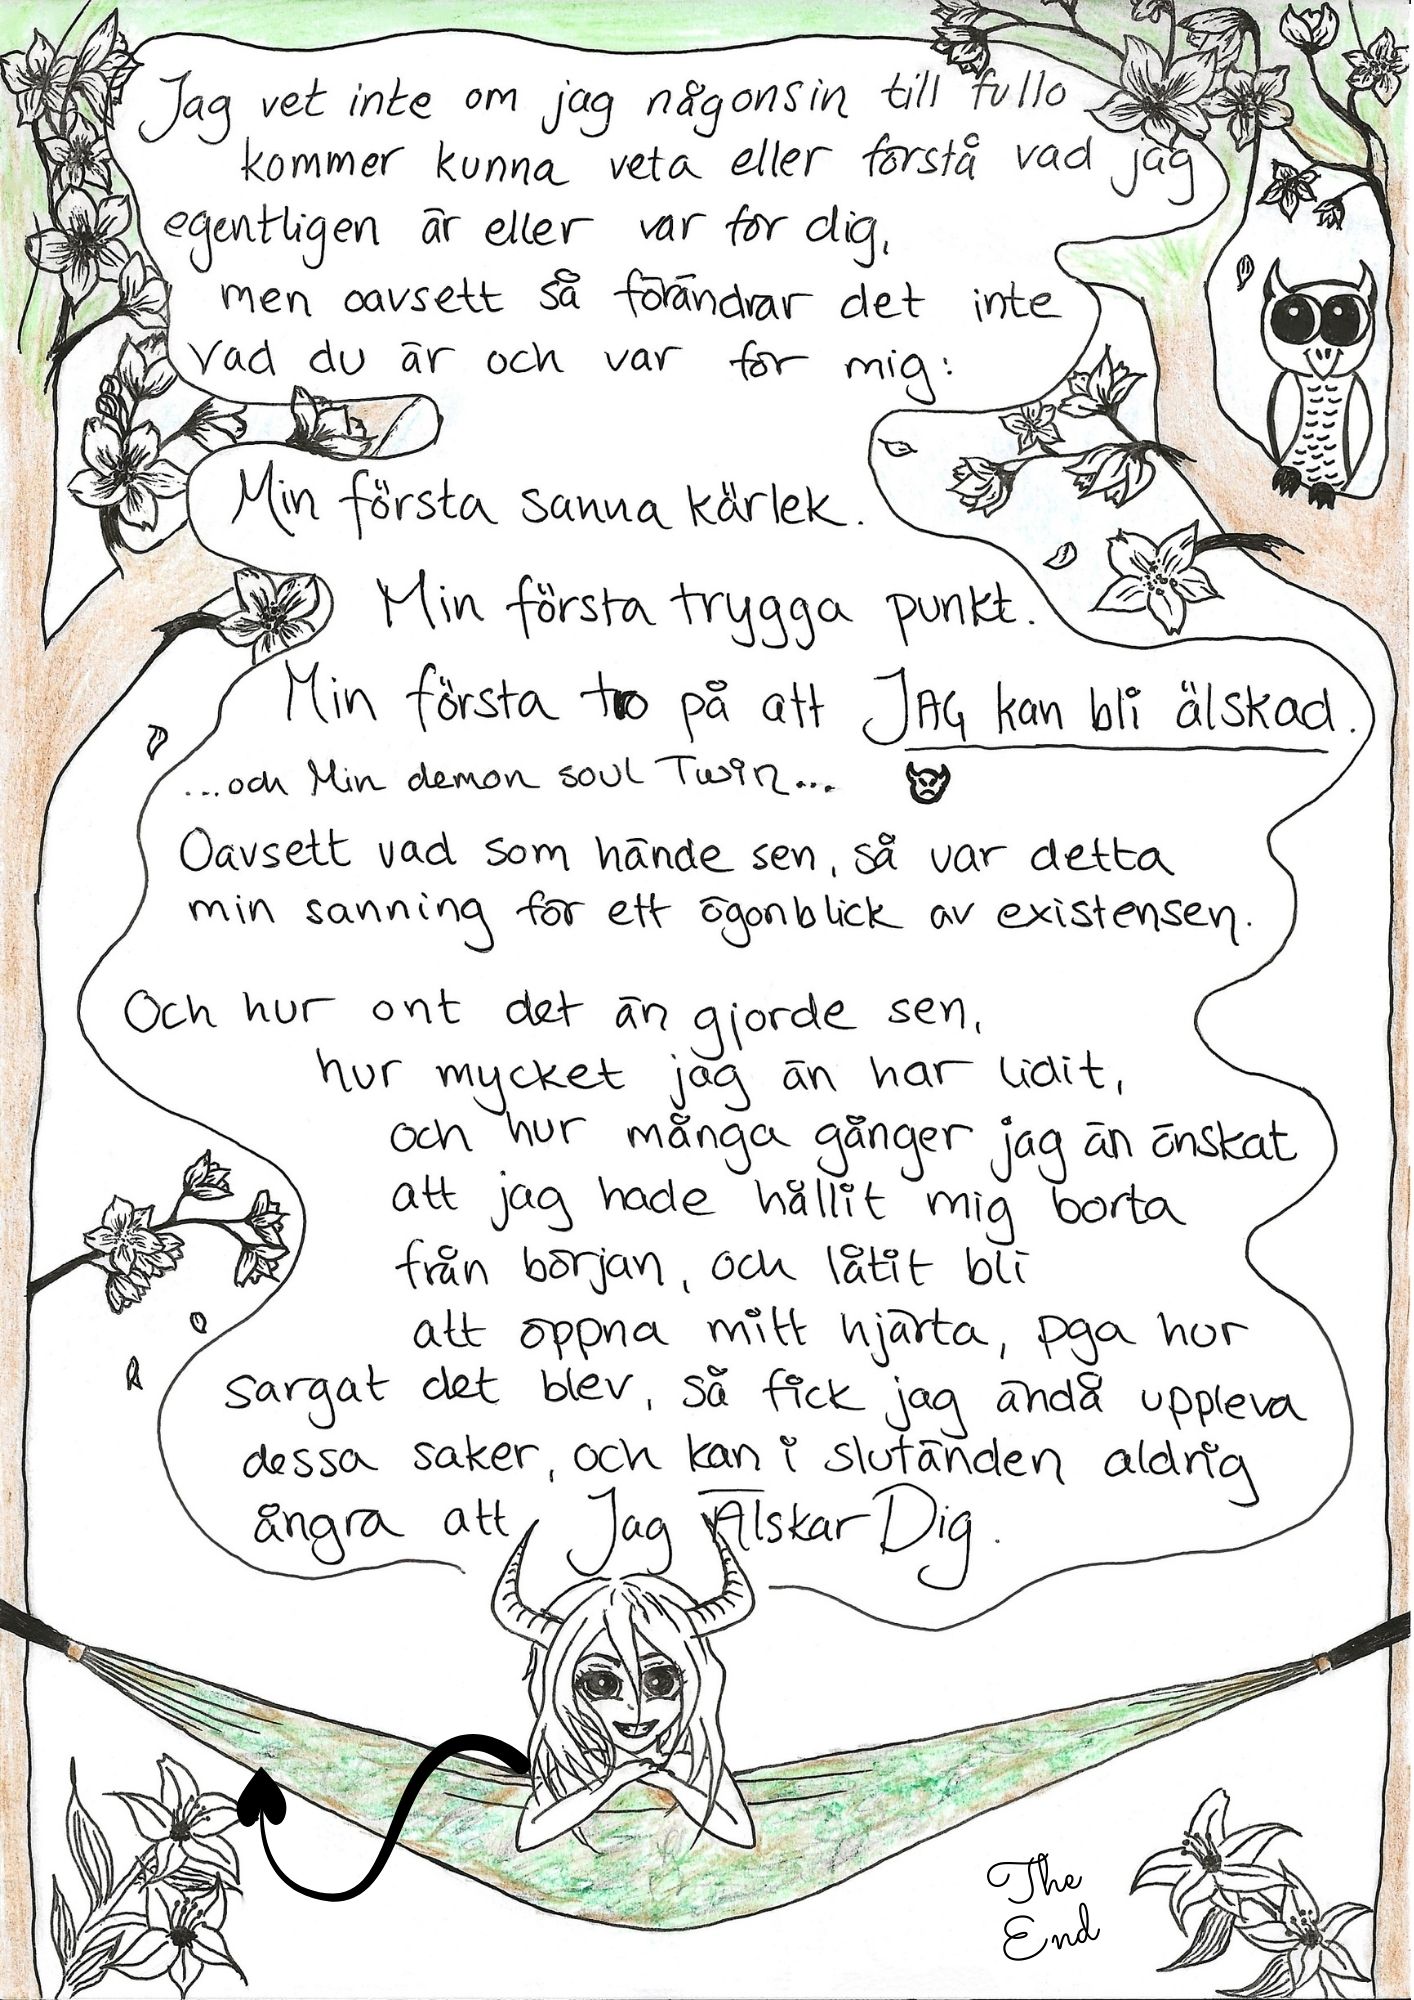 Jag vet inte om jag någonsin till fullo
kommer kunna veta eller förstå vad jag
egentligen är eller var för dig,
men oavsett så förändrar det inte
vad du är och var för mig:
Min första sanna kärlek.
Min första trygga punkt.
Min första tro på att JAG kan bli älskad.
...och Min demon soul Twin...
Oavsett vad som hände sen, så var detta
min sanning för ett ögonblick av existensen.
Och hur ont det än gjorde sen,
hur mycket jag än har lidit,
och hur många gånger jag än önskat
att jag hade hållit mig borta
från början, och låtit bli
att öppna mitt hjärta, pga hur
sargat det blev, så fick jag ändå uppleva
dessa saker, och kan i slutänden aldrig
ångra att Jag Älskar Dig.
The
End